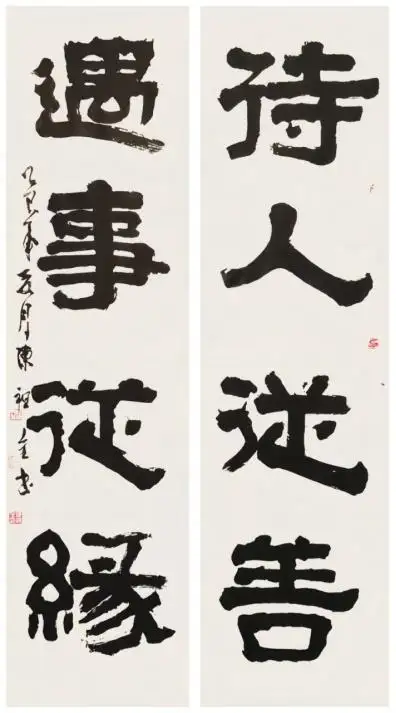 待人從善
遇事從緣
年 月陳祖金書